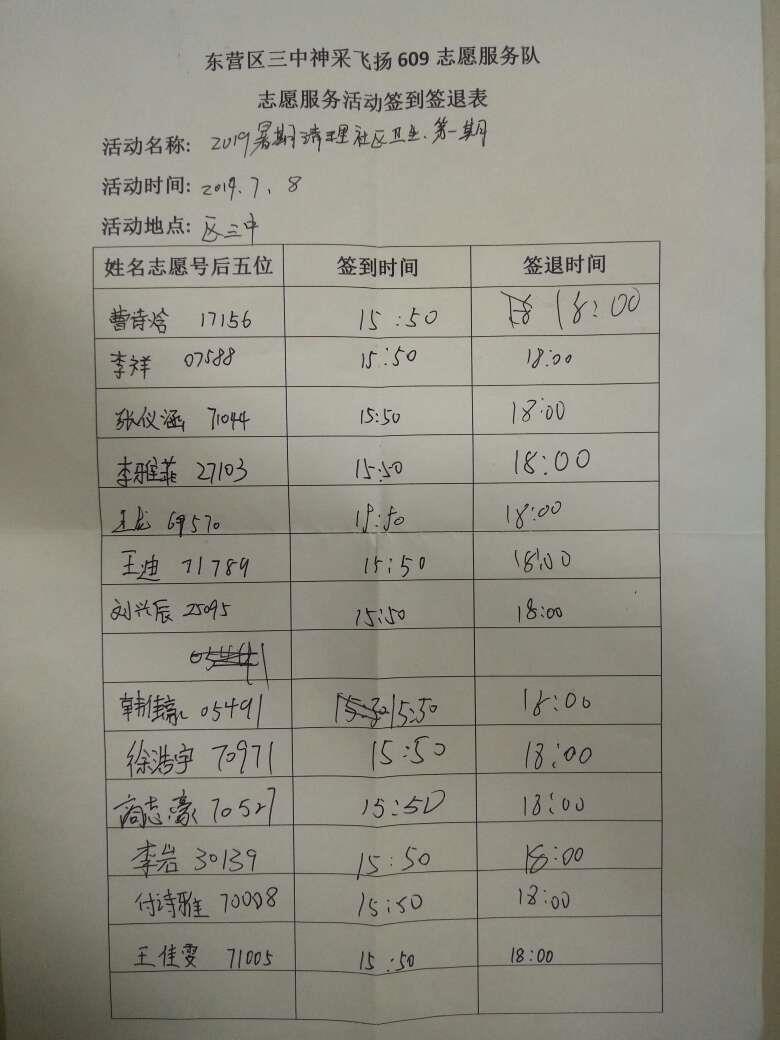 东营区三中神采飞扬609志愿服务队
志愿服务活动签到签退表
活动名称: 2019暑期清理社区卫生.第一期
活动时间: 2019.7.8
活动地点: 区三中
姓名志愿号后五位 签到时间 签退时间
曹诗焓 17156 15:50 18:00
李祥 07588 15:50 18:00
张仪涵 71044 15:50 18:00
李雅菲 27103 15:50 18:00
王龙 69570 15:50 18:00
王迪 71789 15:50 18:00
刘兴辰 25095 15:50 18:00
韩佳豪 05491 15:50 18:00
徐浩宇 70971 15:50 18:00
商志豪 70527 15:50 18:00
李岩 30139 15:50 18:00
付诗雅 70008 15:50 18:00
王佳雯 71005 15:50 18:00